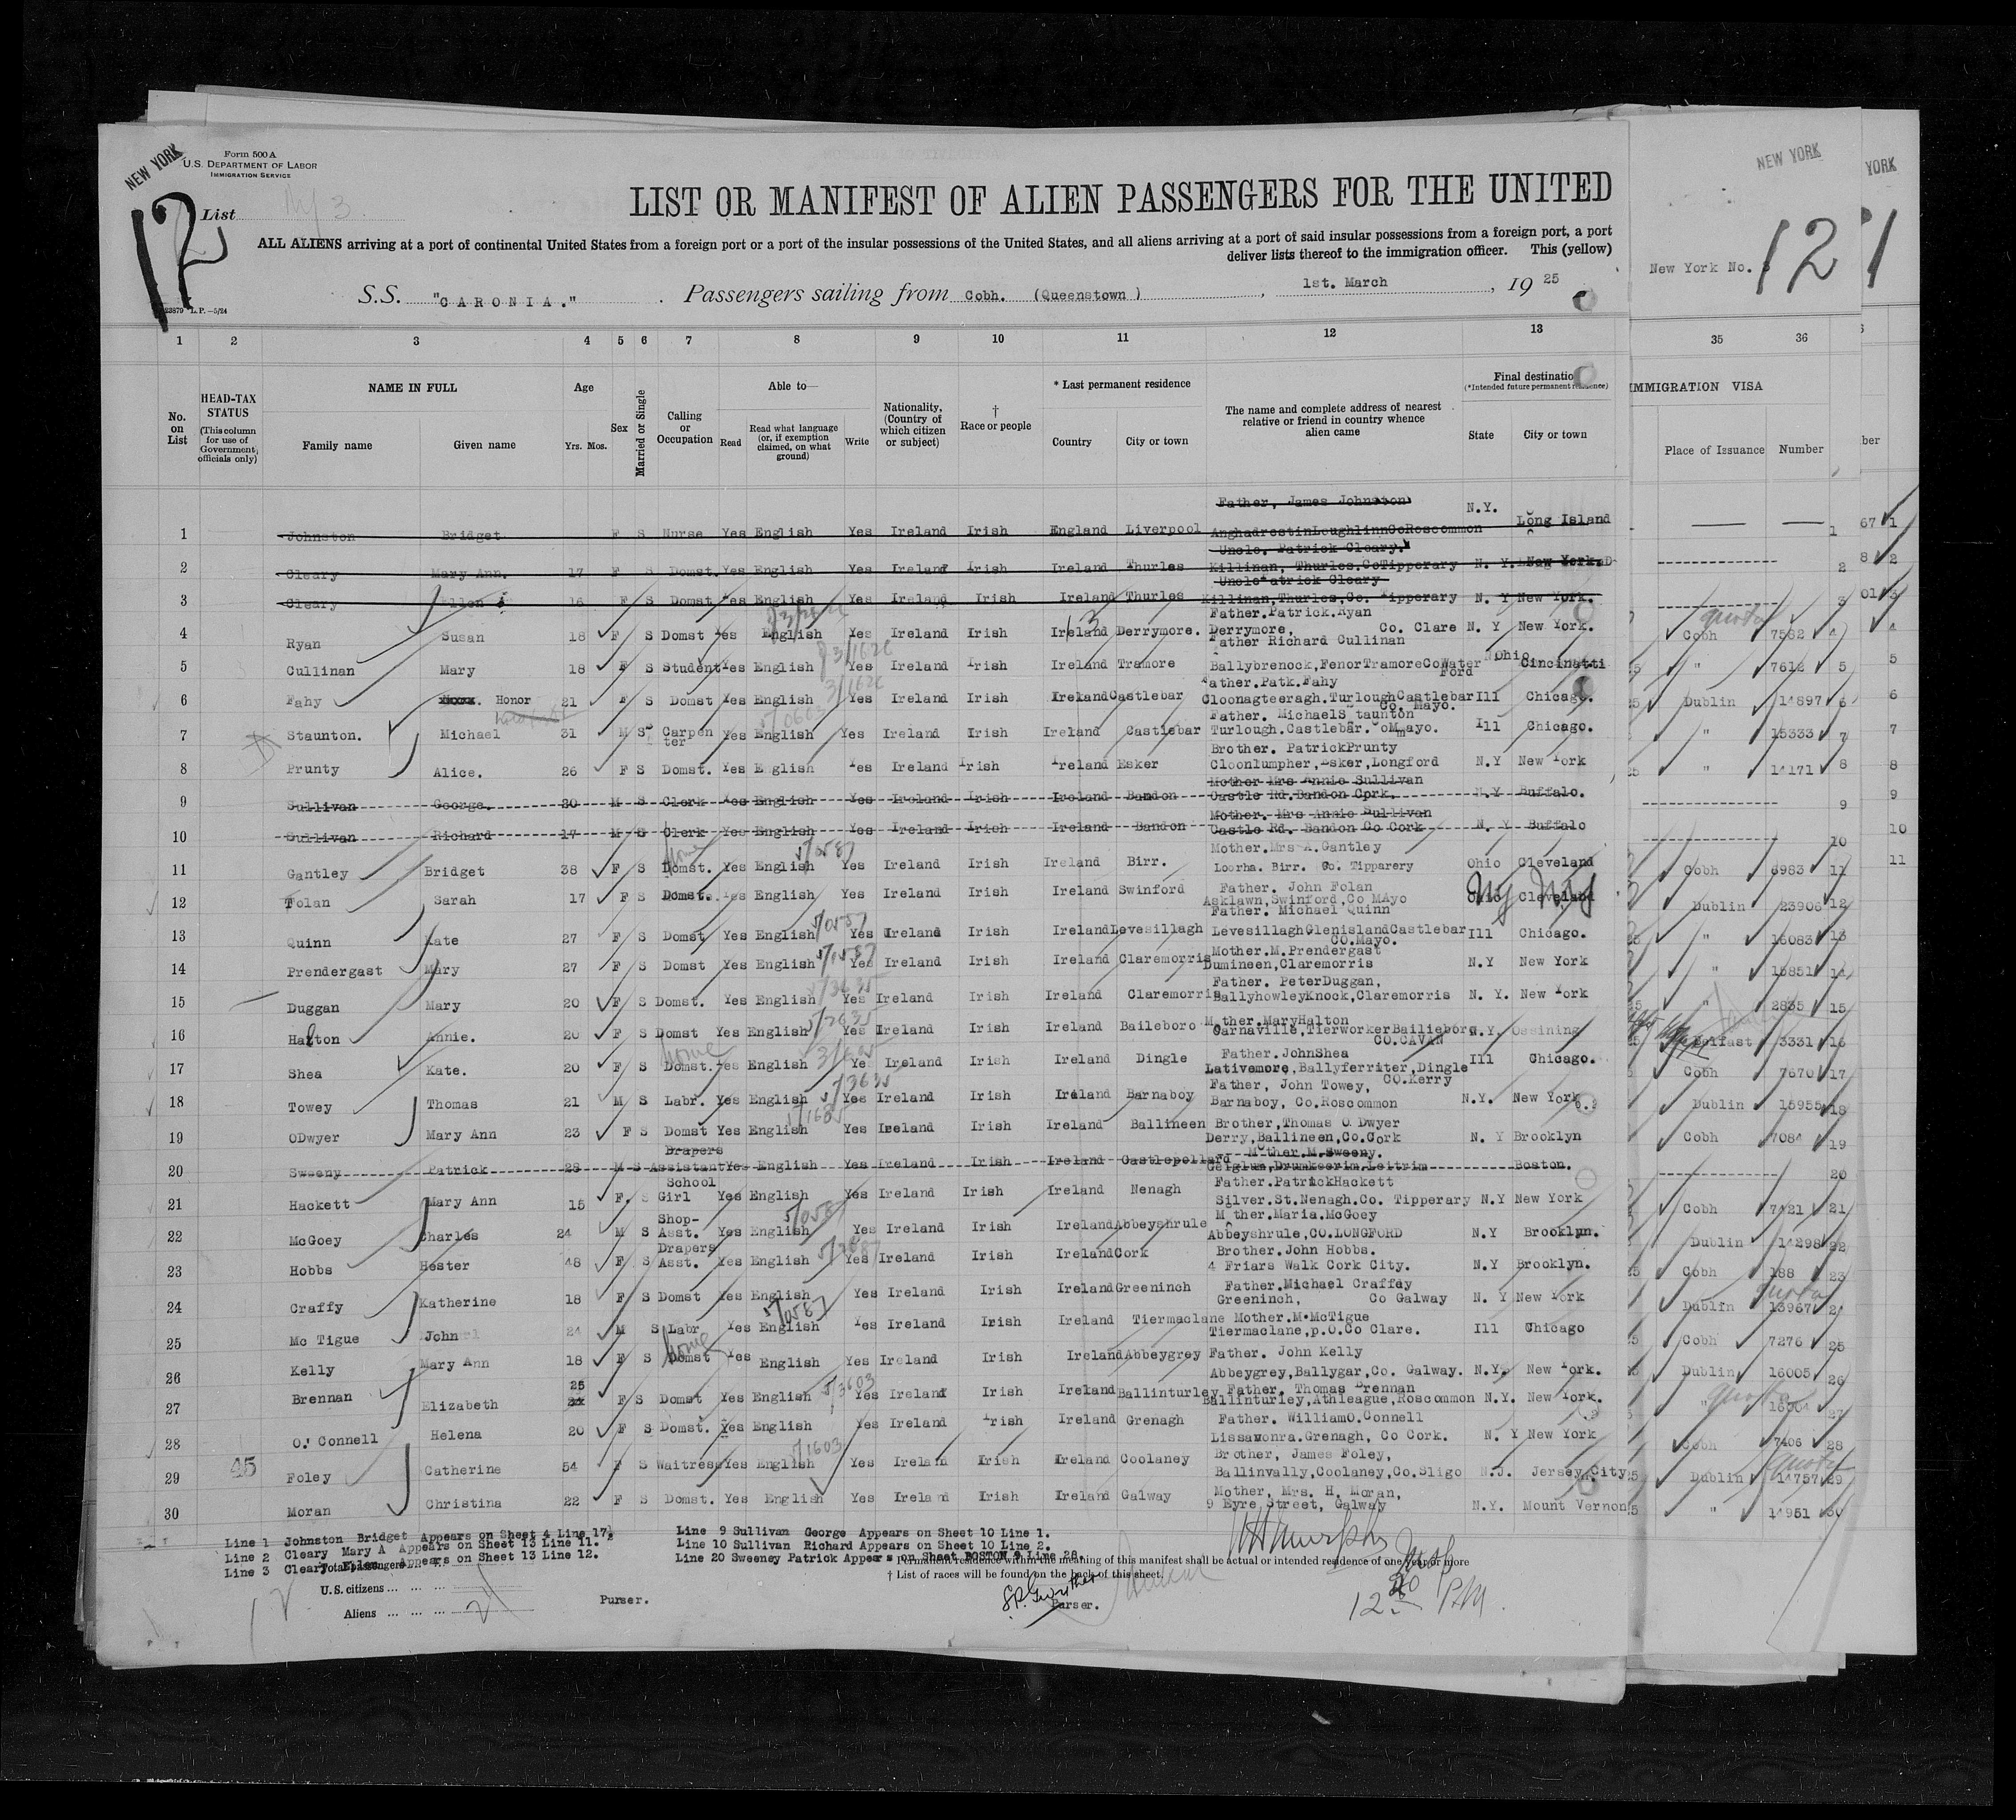 NEW YORK
Form 500 A
U.S. DEPARTMENT OF LABOR
IMMIGRATION SERVICE
12
List NY 3
LIST OR MANIFEST OF ALIEN PASSENGERS FOR THE UNITED
ALL ALIENS arriving at a port of continental United States from a foreign port or a port of the insular possessions of the United States, and all aliens arriving at a port of said insular possessions from a foreign port, a port
deliver lists thereof to the immigration officer. This (yellow)
S.S. "CARONIA." Passengers sailing from Cobh. (Queenstown), 1st. March, 1925
NEW YORK
YORK
New York No. 3
12
1
1 2 3 4 5 6 7 8 9 10 11 12 13 35 36
No. on List
HEAD-TAX STATUS (This column for use of Government officials only)
NAME IN FULL
Family name Given name
Age Yrs. Mos.
Sex
Married or Single
Calling or Occupation
Able to—
Read Read what language (or, if exemption claimed, on what ground) Write
Nationality, (Country of which citizen or subject)
† Race or people
* Last permanent residence
Country City or town
The name and complete address of nearest relative or friend in country whence alien came
Final destination (*Intended future permanent residence)
State City or town
IMMIGRATION VISA
Place of Issuance Number
Father, James Johnston
1 Johnston Bridget F S Nurse Yes English Yes Ireland Irish England Liverpool AnghadrestinLoughlinnCoRoscommon N.Y. Long Island
Uncle. Patrick Cleary.
2 Cleary Mary Ann. 17 F S Domst. Yes English Yes Ireland Irish Ireland Thurles Killinan, Thurles,CoTipperary N. Y. New York.
Uncle Patrick Cleary
3 Cleary Ellen 16 F S Domst Yes English Yes Ireland Irish Ireland Thurles Killinan,Thurles,Co. Tipperary N. Y New York.
Father.Patrick.Ryan
4 Ryan Susan 18 F S Domst Yes English Yes Ireland Irish Ireland Derrymore. Derrymore, Co. Clare N. Y New York. Cobh 7582 4
Father Richard Cullinan
5 Cullinan Mary 18 F S Student Yes English Yes Ireland Irish Ireland Tramore Ballybrenock,FenorTramoreCoWater Ford Ohio Cincinatti " 7612 5
Father.Patk.Fahy
6 Fahy Honor 21 F S Domst Yes English Yes Ireland Irish Ireland Castlebar Cloonagteeragh.TurloughCastlebar Co. Mayo. Ill Chicago. Dublin 14897 6
Father. MichaelStaunton
7 Staunton. Michael 31 M S Carpenter Yes English Yes Ireland Irish Ireland Castlebar Turlough.Castlebar.CoMayo. Ill Chicago. " 15333 7
Brother. PatrickPrunty
8 Prunty Alice. 26 F S Domst. Yes English Yes Ireland Irish Ireland Esker Cloonlumpher,Esker,Longford N.Y New York " 14171 8
Mother Mrs Annie Sullivan
9 Sullivan George. 20 M S Clerk Yes English Yes Ireland Irish Ireland Bandon Castle Rd.Bandon Cork. N.Y Buffalo. 9
Mother. Mrs Annie Sullivan
10 Sullivan Richard 17 M S Clerk Yes English Yes Ireland Irish Ireland Bandon Castle Rd. Bandon Co Cork N. Y Buffalo 10
Mother.Mrs A.Gantley
11 Gantley Bridget 38 F S Domst. Yes English Yes Ireland Irish Ireland Birr. Loorha. Birr. Co. Tipparery Ohio Cleveland Cobh 6983 11
Father. John Folan
12 Folan Sarah 17 F S Domst. Yes English Yes Ireland Irish Ireland Swinford Asklawn,Swinford,Co MAyo Ohio Cleveland NY N.Y Dublin 23906 12
Father. Michael Quinn
13 Quinn Kate 27 F S Domst Yes English Yes Ireland Irish Ireland Levesillagh LevesillaghGlenislandCastlebar CO.Mayo. Ill Chicago. " 16083 13
Mother.M.Prendergast
14 Prendergast Mary 27 F S Domst Yes English Yes Ireland Irish Ireland Claremorris Dumineen,Claremorris N.Y New York " 15851 14
Father. PeterDuggan,
15 Duggan Mary 20 F S Domst. Yes English Yes Ireland Irish Ireland Claremorris BallyhowleyKnock,Claremorris N. Y. New York " 2835 15
Mother.MaryHalton
16 Halton Annie. 20 F S Domst Yes English Yes Ireland Irish Ireland Baileboro Carnaville,TierworkerBailieboro CO.CAVAN N.Y. Ossining Belfast 3331 16
Father.JohnShea
17 Shea Kate. 20 F S Domst. Yes English Ye Ireland Irish Ireland Dingle Lativemore,Ballyferriter,Dingle CO.Kerry Ill Chicago. Cobh 7670 17
Father, John Towey,
18 Towey Thomas 21 M S Labr. Yes English Yes Ireland Irish Ireland Barnaboy Barnaboy, Co.Roscommon N.Y. New York Dublin 15955 18
19 ODwyer Mary Ann 23 F S Domst Yes English Yes Ireland Irish Ireland Ballineen Brother,Thomas O Dwyer Derry,Ballineen,Co.Cork N. Y Brooklyn Cobh 7084 19
20 Sweeny Patrick 28 M S Drapers Assistant Yes English Yes Ireland Irish Ireland Castlepollard Mother.M.Sweeny. Gelglun,Drumkeerim,Leitrim Boston. 20
Father.PatrickHackett
21 Hackett Mary Ann 15 F. S School Girl Yes English Yes Ireland Irish Ireland Nenagh Silver.St.Nenagh.Co. Tipperary N.Y New York Cobh 7421 21
Mother.Maria.McGoey
22 McGoey Charles 24 M S Shop-Asst. Yes English Yes Ireland Irish Ireland Abbeyshrule Abbeyshrule,CO.LONGFORD N.Y Brooklyn. Dublin 14298 22
Brother.John Hobbs.
23 Hobbs Hester 48 F S Drapers Asst. Yes English Yes Ireland Irish Ireland Cork 4 Friars Walk Cork City. N.Y Brooklyn. Cobh 188 23
Father.Michael Craffey
24 Craffy Katherine 18 F S Domst Yes English Yes Ireland Irish Ireland Greeninch Greeninch, Co Galway N. Y New York Dublin 13967 24
25 Mc Tigue John 24 M S Labr Yes English Yes Ireland Irish Ireland Tiermaclane Mother.M.McTigue Tiermaclane,p.O.Co Clare. Ill Chicago Cobh 7276 25
26 Kelly Mary Ann 18 F S Domst Yes English Yes Ireland Irish Ireland Abbeygrey Father. John Kelly Abbeygrey,Ballygar,Co. Galway. N.Y. New York. Dublin 16005 26
27 Brennan Elizabeth 25 F S Domst Yes English Yes Ireland Irish Ireland Ballinturley Father. Thomas Brennan Ballinturley,Athleague,Roscommon N.Y. New York. " 16004 27
28 O.' Connell Helena 20 F S Domst. Yes English Yes Ireland Irish Ireland Grenagh Father. WilliamO.Connell Lissavonra.Grenagh, Co Cork. N. Y New York Cobh 7406 28
29 45 Foley Catherine 54 F S Waitress Yes English Yes Ireland Irish Ireland Coolaney Brother, James Foley, Ballinvally,Coolaney,Co.Sligo N.J. Jersey City Dublin 14757 29
30 Moran Christina 22 F S Domst. Yes English Yes Ireland Irish Ireland Galway Mother, Mrs. H. Moran, 9 Eyre Street, Galway N.Y. Mount Vernon " 14951 30
Line 1 Johnston Bridget Appears on Sheet 4 Line 17.
Line 2 Cleary Mary A Appears on Sheet 13 Line 11.
Line 3 Cleary Ellen Appears on Sheet 13 Line 12.
Line 9 Sullivan George Appears on Sheet 10 Line 1.
Line 10 Sullivan Richard Appears on Sheet 10 Line 2.
Line 20 Sweeney Patrick Appears on Sheet BOSTON 9 Line 28.
Total passengers
U.S. citizens ... ... ...
Aliens ... ... ... 24
Permanent residence within the meaning of this manifest shall be actual or intended residence of one year or more
† List of races will be found on the back of this sheet.
Purser.
Purser.
12 PM